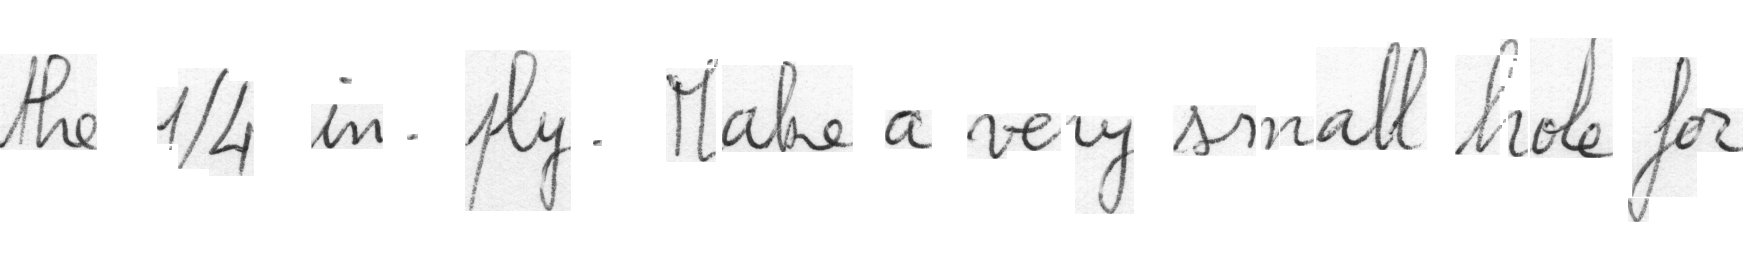 the 1/4 in. ply. Make a very small hole for